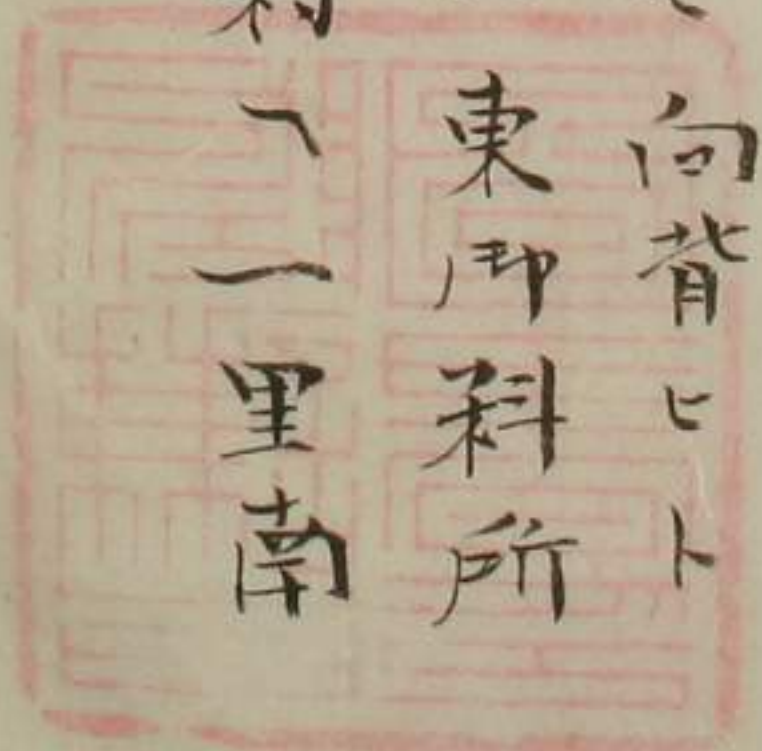 向背ヒト
東御料所
村ヘ一里南